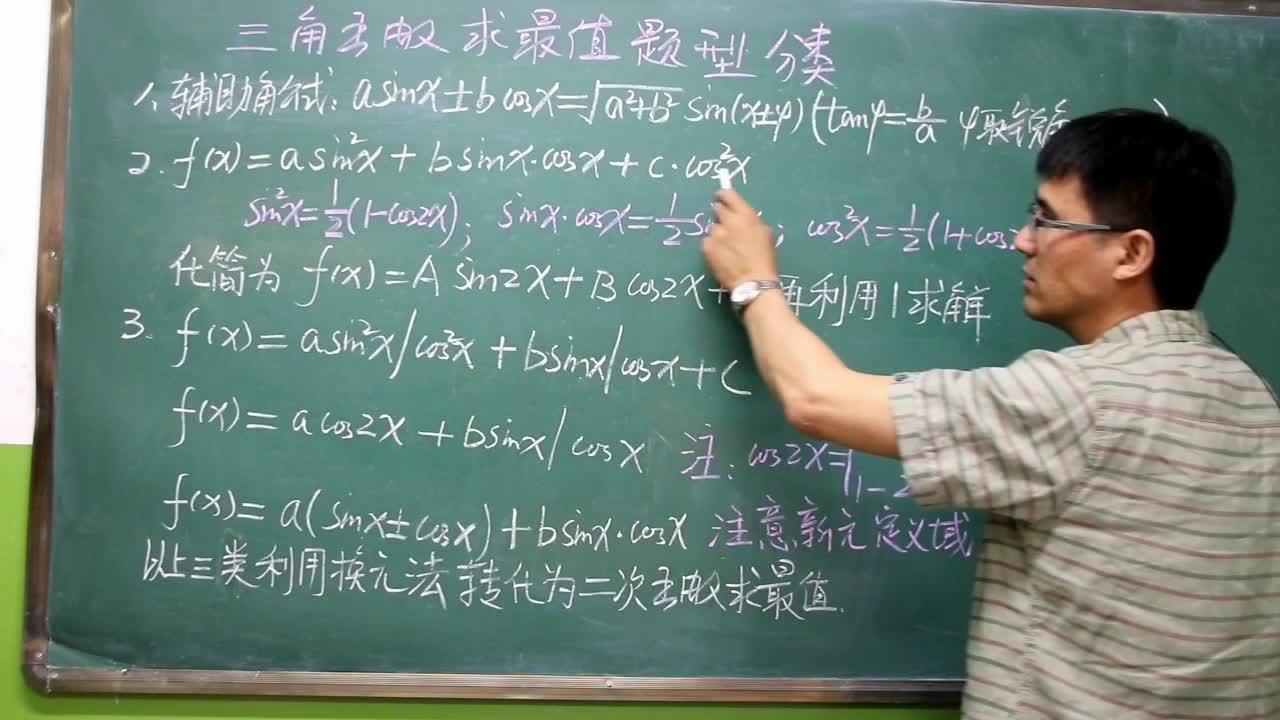 三角函数求最值题型分类
1、辅助角公式: a sinx ± b cosx = √(a²+b²) sin(x±φ) (tanφ = b/a φ取锐角 )
2. f(x) = a sin²x + b sinx·cosx + c·cos²x
sin²x = 1/2(1-cos2x); sinx·cosx = 1/2 si ; cos²x = 1/2(1+cos
化简为 f(x) = A sin2x + B cos2x + 再利用1求解
3. f(x) = a sin²x/cos²x + b sinx/cosx + C
f(x) = a cos2x + b sinx/cosx 注: cos2x = { 1-2
f(x) = a(sinx ± cosx) + b sinx·cosx 注意新元定义域
以上三类利用换元法转化为二次函数求最值.